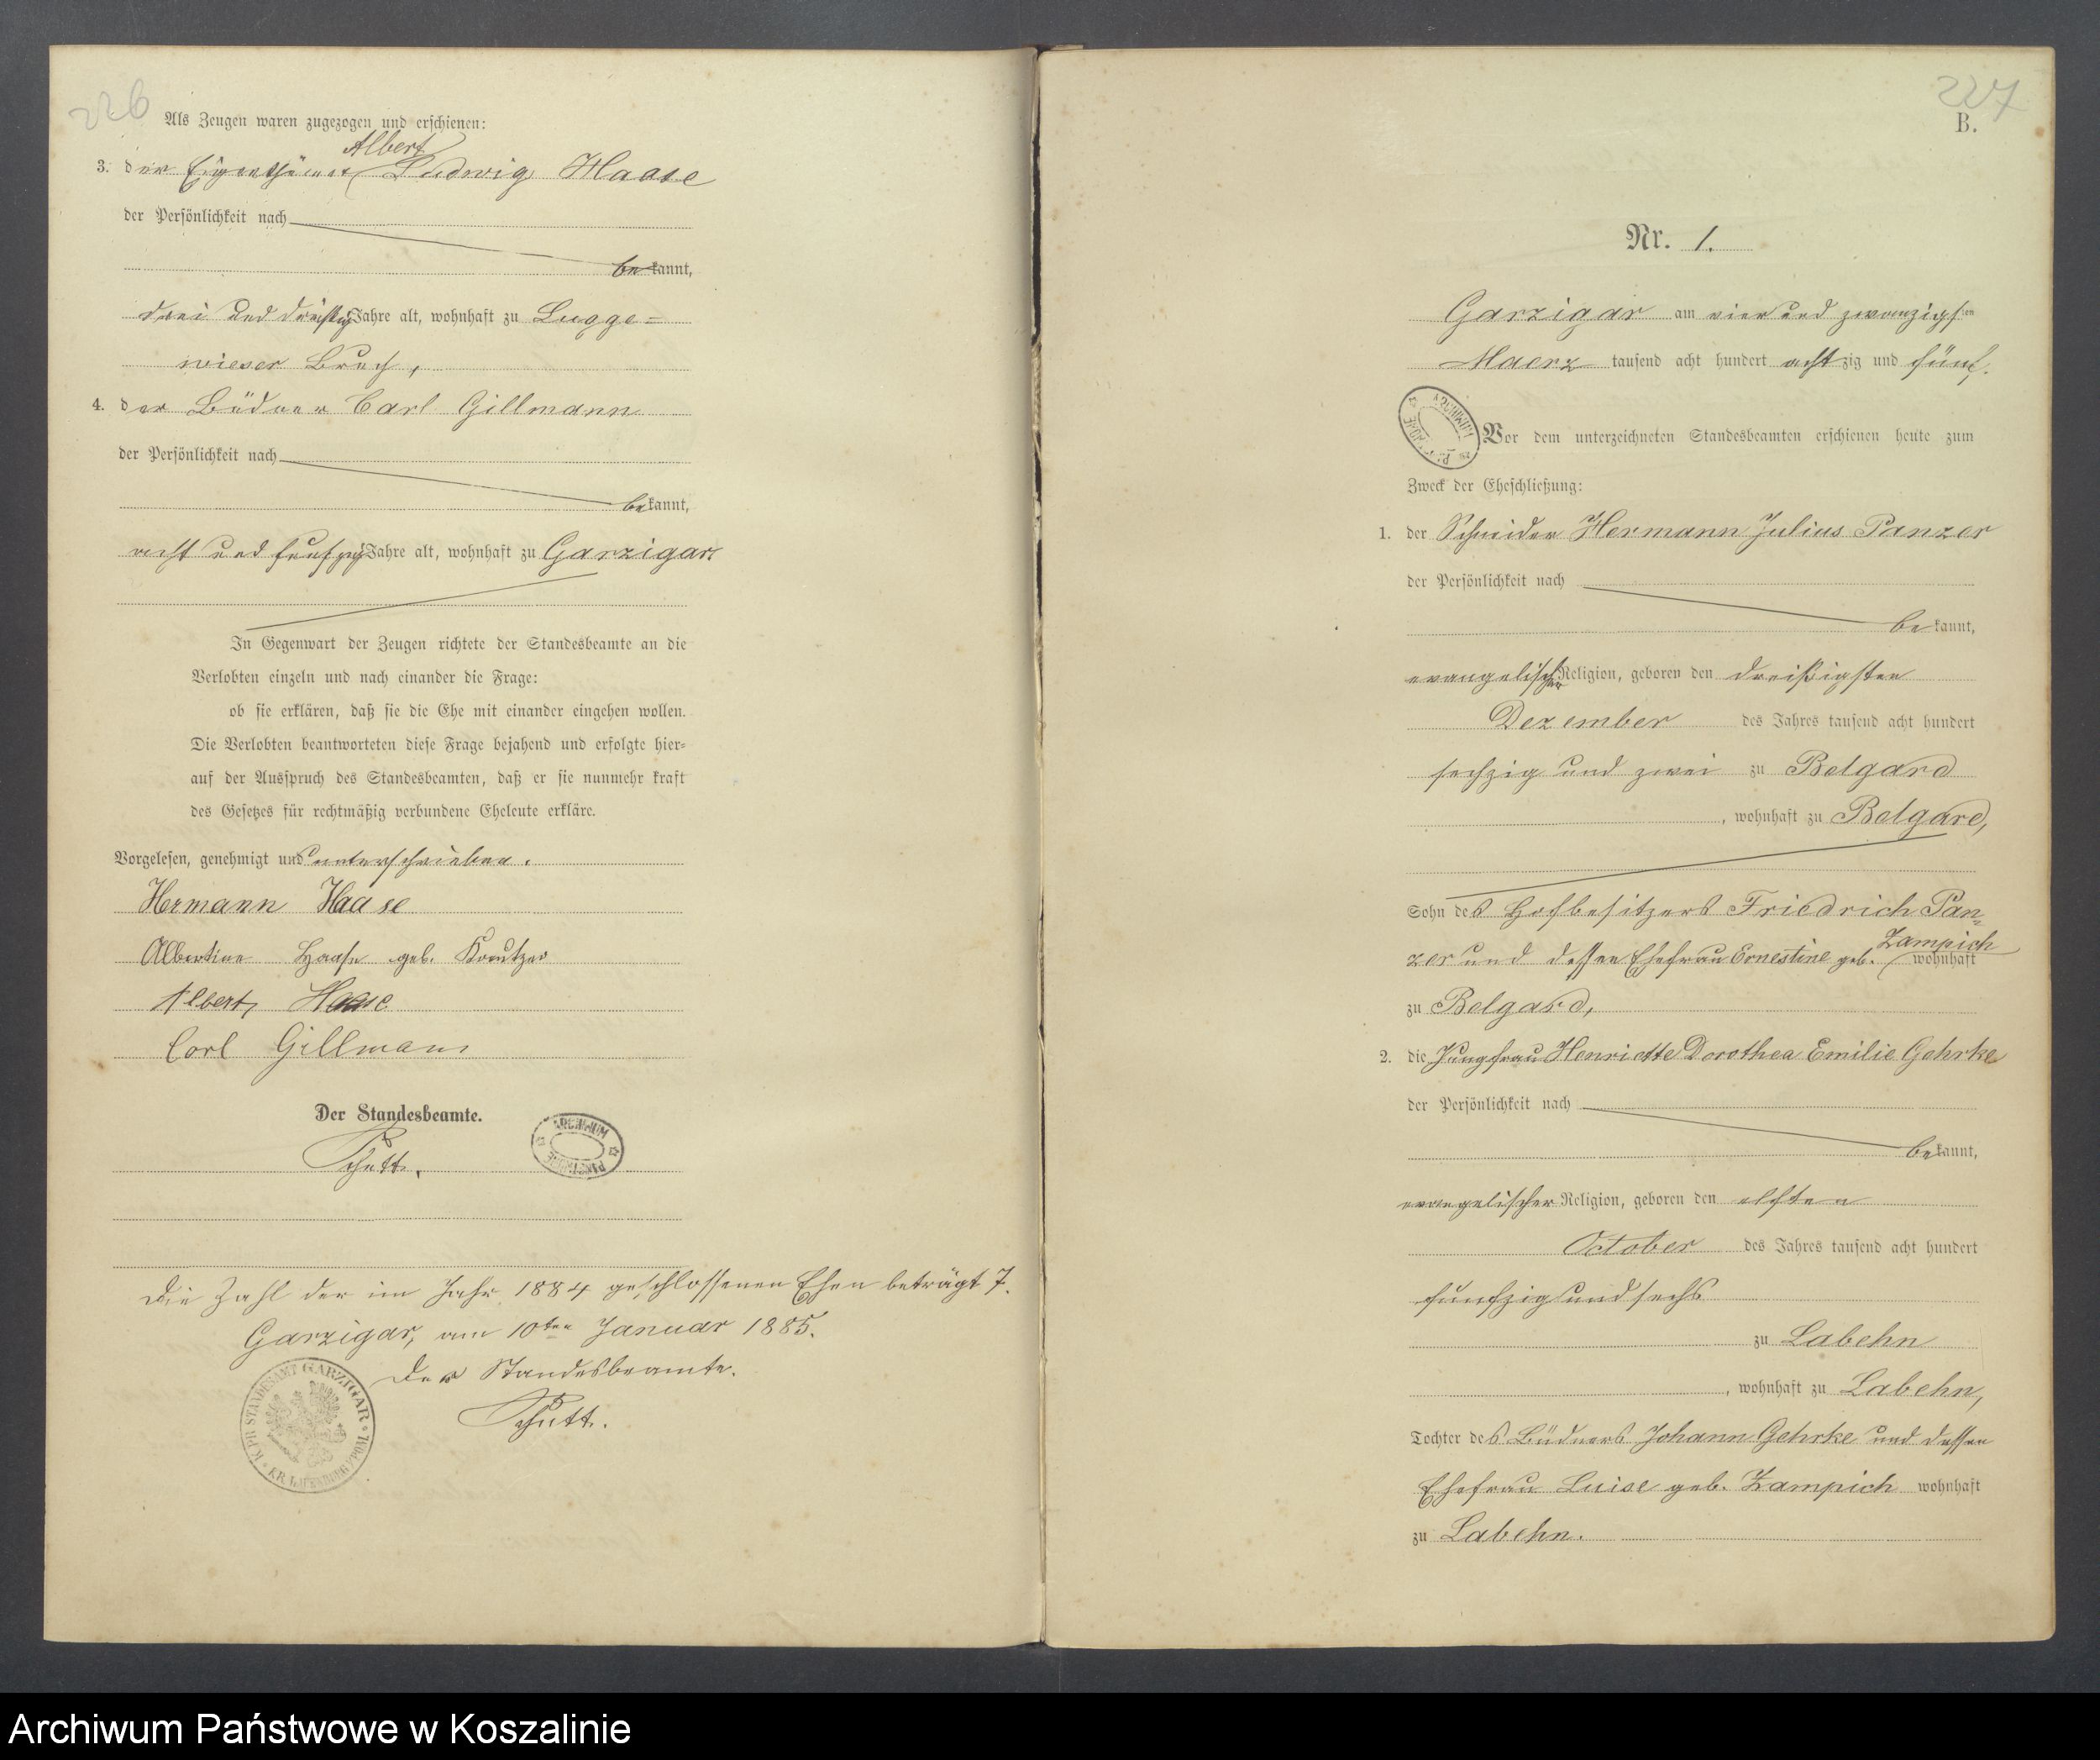 226
Als Zeugen waren zugezogen und erschienen:
Albert
3. der Eigenthümer Ludwig Haase
der Persönlichkeit nach
bekannt,
drei und dreißig Jahre alt, wohnhaft zu Lugge=
wieser Bruch,
4. der Büdner Carl Gillmann
der Persönlichkeit nach
bekannt,
acht und funfzig Jahre alt, wohnhaft zu Garzigar.
In Gegenwart der Zeugen richtete der Standesbeamte an die
Verlobten einzeln und nach einander die Frage:
ob sie erklären, daß sie die Ehe mit einander eingehen wollen.
Die Verlobten beantworteten diese Frage bejahend und erfolgte hier=
auf der Ausspruch des Standesbeamten, daß er sie nunmehr kraft
des Gesetzes für rechtmäßig verbundene Eheleute erkläre.
Vorgelesen, genehmigt und unterschrieben.
Hermann Haase
Albertine Haase geb. Kreutzer
Albert Haase
Carl Gillmann
Der Standesbeamte.
Schutt.
ARCHIWUM
Die Zahl der im Jahr 1884 geschlossenen Ehen beträgt 7.
Garzigar, am 10ten Januar 1885.
Der Standesbeamte.
Schutt.
K. PR. STANDESAMT GARZIGAR
227
B.
Nr. 1.
Garzigar am vier und zwanzigsten
Maerz tausend acht hundert achtzig und fünf.
ARCHIWUM
Vor dem unterzeichneten Standesbeamten erschienen heute zum
Zweck der Eheschließung:
1. der Schneider Hermann Julius Panzer
der Persönlichkeit nach
bekannt,
evangelischer Religion, geboren den dreißigsten
Dezember des Jahres tausend acht hundert
sechzig und zwei zu Belgard
, wohnhaft zu Belgard,
Sohn des Hofbesitzers Friedrich Pan=
zer und dessen Ehefrau Ernestine geb. Zampich wohnhaft
zu Belgard,
2. die Jungfrau Henriette Dorothea Emilie Gehrke
der Persönlichkeit nach
bekannt,
evangelischer Religion, geboren den elften
October des Jahres tausend acht hundert
funfzig und sechs
zu Labehn
, wohnhaft zu Labehn,
Tochter des Büdners Johann Gehrke und dessen
Ehefrau Luise geb. Zampich wohnhaft
zu Labehn.
Archiwum Państwowe w Koszalinie